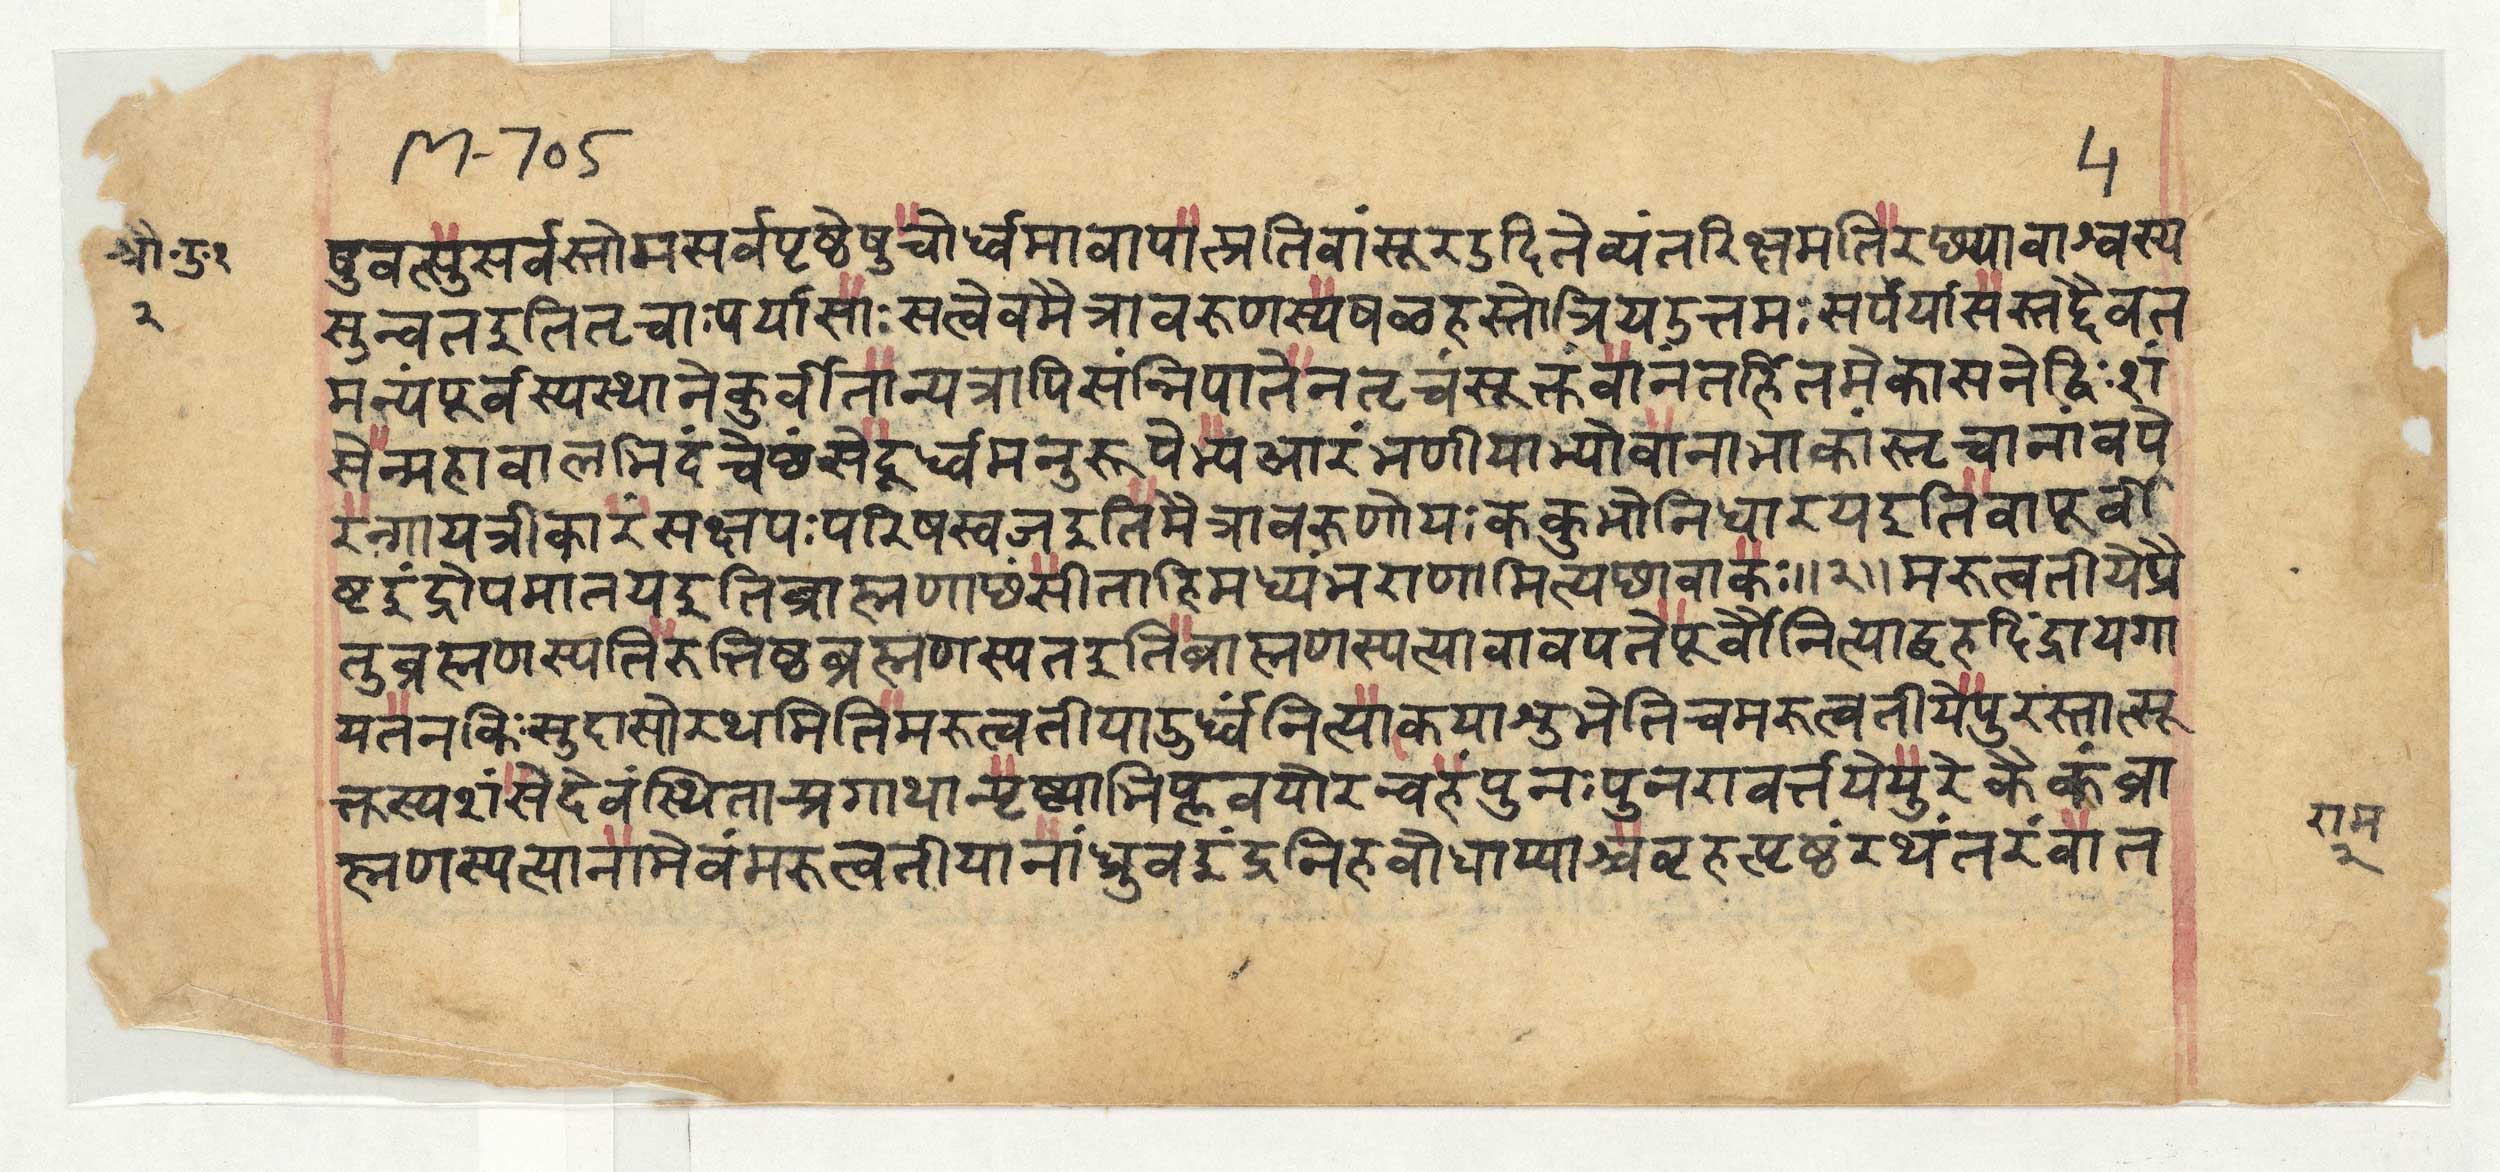 M-705
4
श्रौ॰उ॰१
२
ष्टुवत्सुसर्वस्तोमसर्वपृष्ठेषुचोर्ध्वमावापात्प्रतिवांसूरउदितेव्यंतरिक्षमतिरछ्यावाश्वस्य
सुन्वतइतितृचाःपर्यासाःसत्वेवमैत्रावरुणस्यषळहस्तोत्रियउत्तमःसपर्यासस्तद्दैवत
मन्यंपूर्वस्यस्थानेकुर्वीतान्यत्रापिसंन्निपातेनतृचंसूक्तंवानंतर्हितमेकासनेद्विःशं
सेन्महावालमिदंचेष्ठंसेदूर्ध्वमनुरूपेभ्यआरंभणीयाभ्योवानाभाकांस्तृचानांवपे
रन्गायत्रीकारंसक्षपःपरिषस्वजइतिमैत्रावरुणोयःककुभोनिधारयइतिवापूर्वी
ष्टइंद्रोपमातयइतिब्राह्मणाछंसीताहिमध्यंभराणामित्यछावाकः॥२॥मरुत्वतीयेप्रै
तुब्रह्मणस्पतिरुत्तिष्ठब्रह्मणस्पतइतिब्राह्मणस्पत्यावावपतेपूर्वौनित्याद्बृहदिंद्रायगा
यतनकिःसुदासोरथमितिमरुत्वतीयाउर्ध्वंनित्याकयाशुभेतिचमरुत्वतीयेपुरस्तात्सू
क्तस्यशंसेदेवंस्थितान्प्रगाथान्पृष्ठ्याभिप्लवयोरन्वहंपुनःपुनरावर्त्तयेयुरेकैकंब्रा
ह्मणस्पत्यानामेवंमरुत्वतीयानांध्रुवइंद्रनिहवोधाय्याश्चबृहत्पृष्ठंरथंतरंवात
राम
२